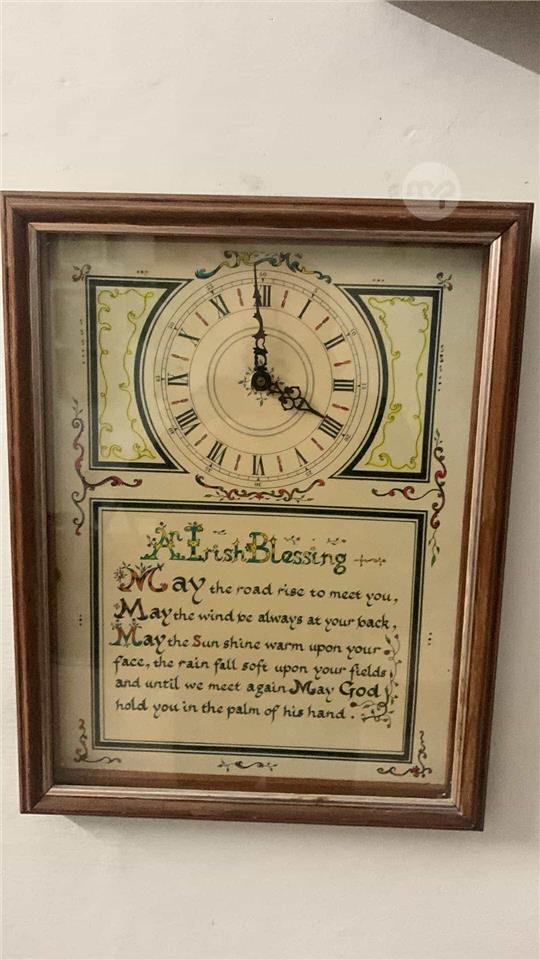 XII
I
II
III
IIII
V
VI
VII
VIII
IX
X
XI
An Irish Blessing
May the road rise to meet you,
May the wind be always at your back,
May the Sun shine warm upon your
face, the rain fall soft upon your fields
and until we meet again May God
hold you in the palm of his hand.